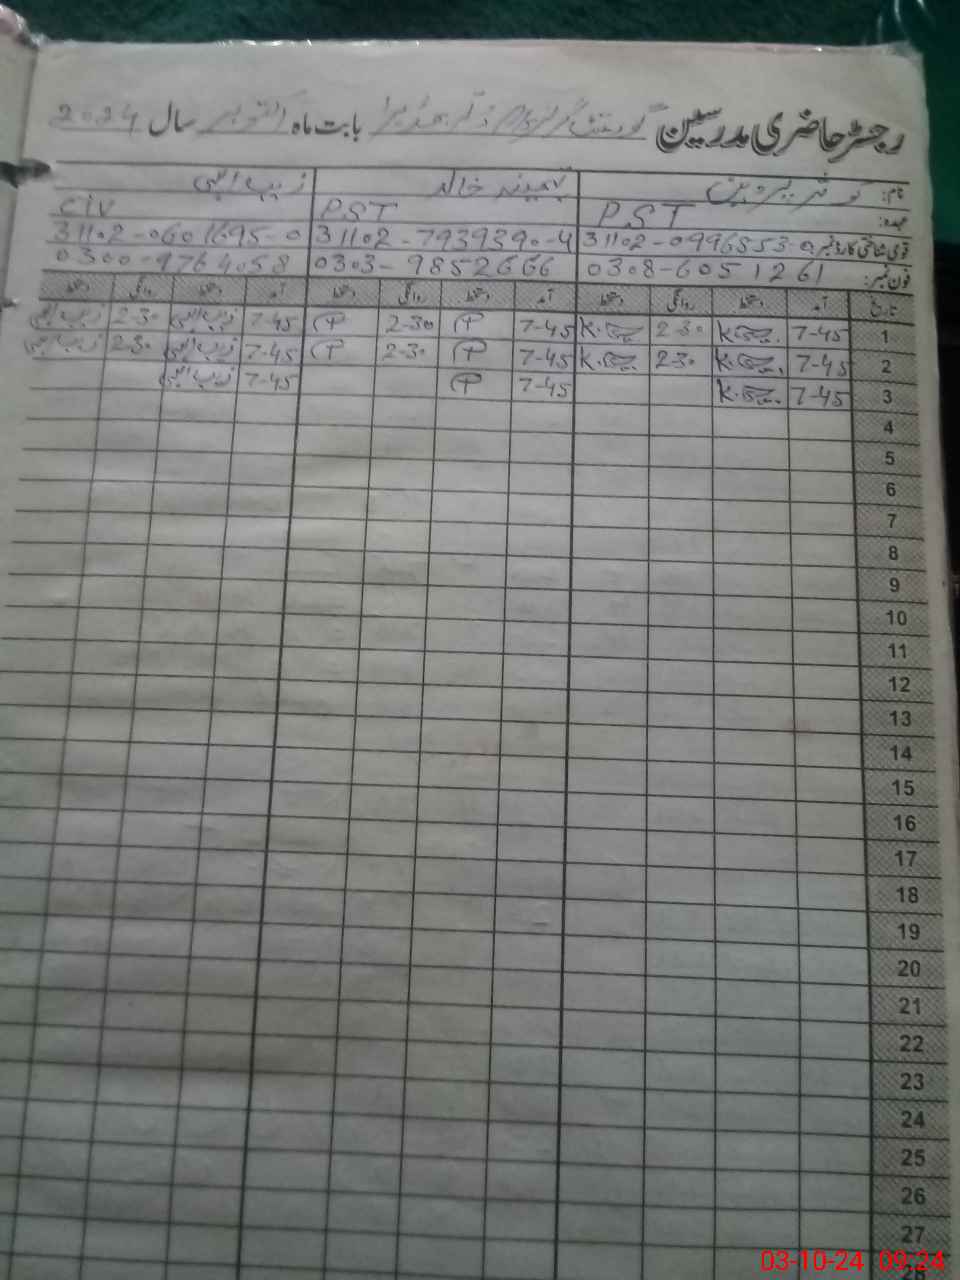 رجسٹر حاضری مدرسین گورنمنٹ گرلز بابت ماہ اکتوبر سال 2024
نام: کوثر پروین ثمینہ خالد زیب الہی
عہدہ: PST PST CIV
قومی شناختی کارڈ نمبر: 31102-0996553-0 31102-7939390-4 31102-0601695-0
فون نمبر: 0308-6051261 0303-9852666 0300-9764058
تاریخ آمد دستخط روانگی دستخط آمد دستخط روانگی دستخط آمد دستخط روانگی دستخط
1 7-45 2-30 7-45 2-30 7-45 زیب الہی 2-30 زیب الہی
2 7-45 2-30 7-45 2-30 7-45 زیب الہی 2-30 زیب الہی
3 7-45 7-45 7-45 زیب الہی
4
5
6
7
8
9
10
11
12
13
14
15
16
17
18
19
20
21
22
23
24
25
26
27
03-10-24 09:24